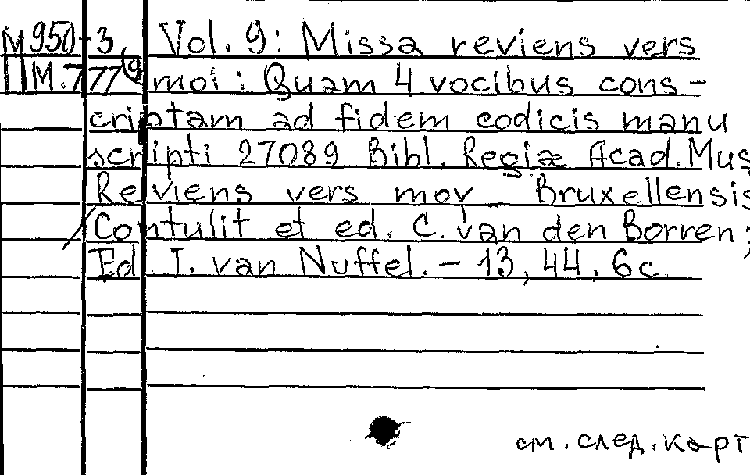 М950-3, Vol. 9: Missa reviens vers
ПМ.777(9 moi: Quam 4 vocibus cons-
criptam ad fidem codicis manu
scripti 27089 Bibl. Regiæ Acad. Mus
Reviens vers mov Bruxellensis
Contulit et ed. C. van den Borren;
Ed J. van Nuffel. – 13, 44. 6c
см. след. карт